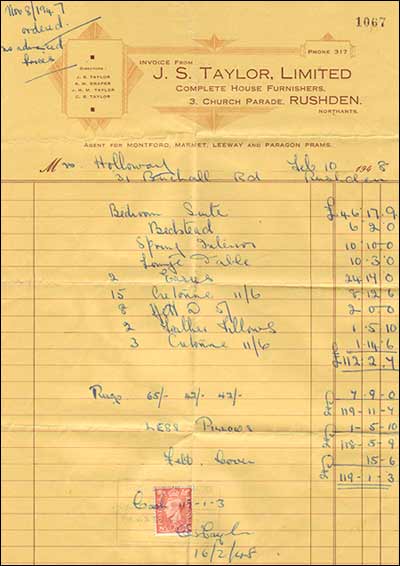 Nov 8/1947
ordered
no advanced
prices
1067
PHONE 317
DIRECTORS:
J. S. TAYLOR
A. W. DRAPER
J. H. M. TAYLOR
C. S. TAYLOR
INVOICE FROM
J. S. TAYLOR, LIMITED
COMPLETE HOUSE FURNISHERS,
3, CHURCH PARADE, RUSHDEN.
NORTHANTS.
AGENT FOR MONTFORD, MARMET, LEEWAY AND PARAGON PRAMS.
Mrs. Holloway Feb 10 1948
31 Birchall Rd Rushden
Bedroom Suite £46 17 9
Bedstead 6 2 0
Spring Interior 10 10 0
Lounge Table 10 3 0
2 24 14 0
15 Cretonne 11/6 8 12 6
8 2 0 0
2 Feather Pillows 1 5 10
3 Cretonne 11/6 1 14 6
£112 2 7
Rugs 65/- 42/- 42/- 7 9 0
119 11 7
LESS Pillows 1 5 10
118 5 9
Cover 15 6
119 1 3
Cash 119-1-3
16/2/48